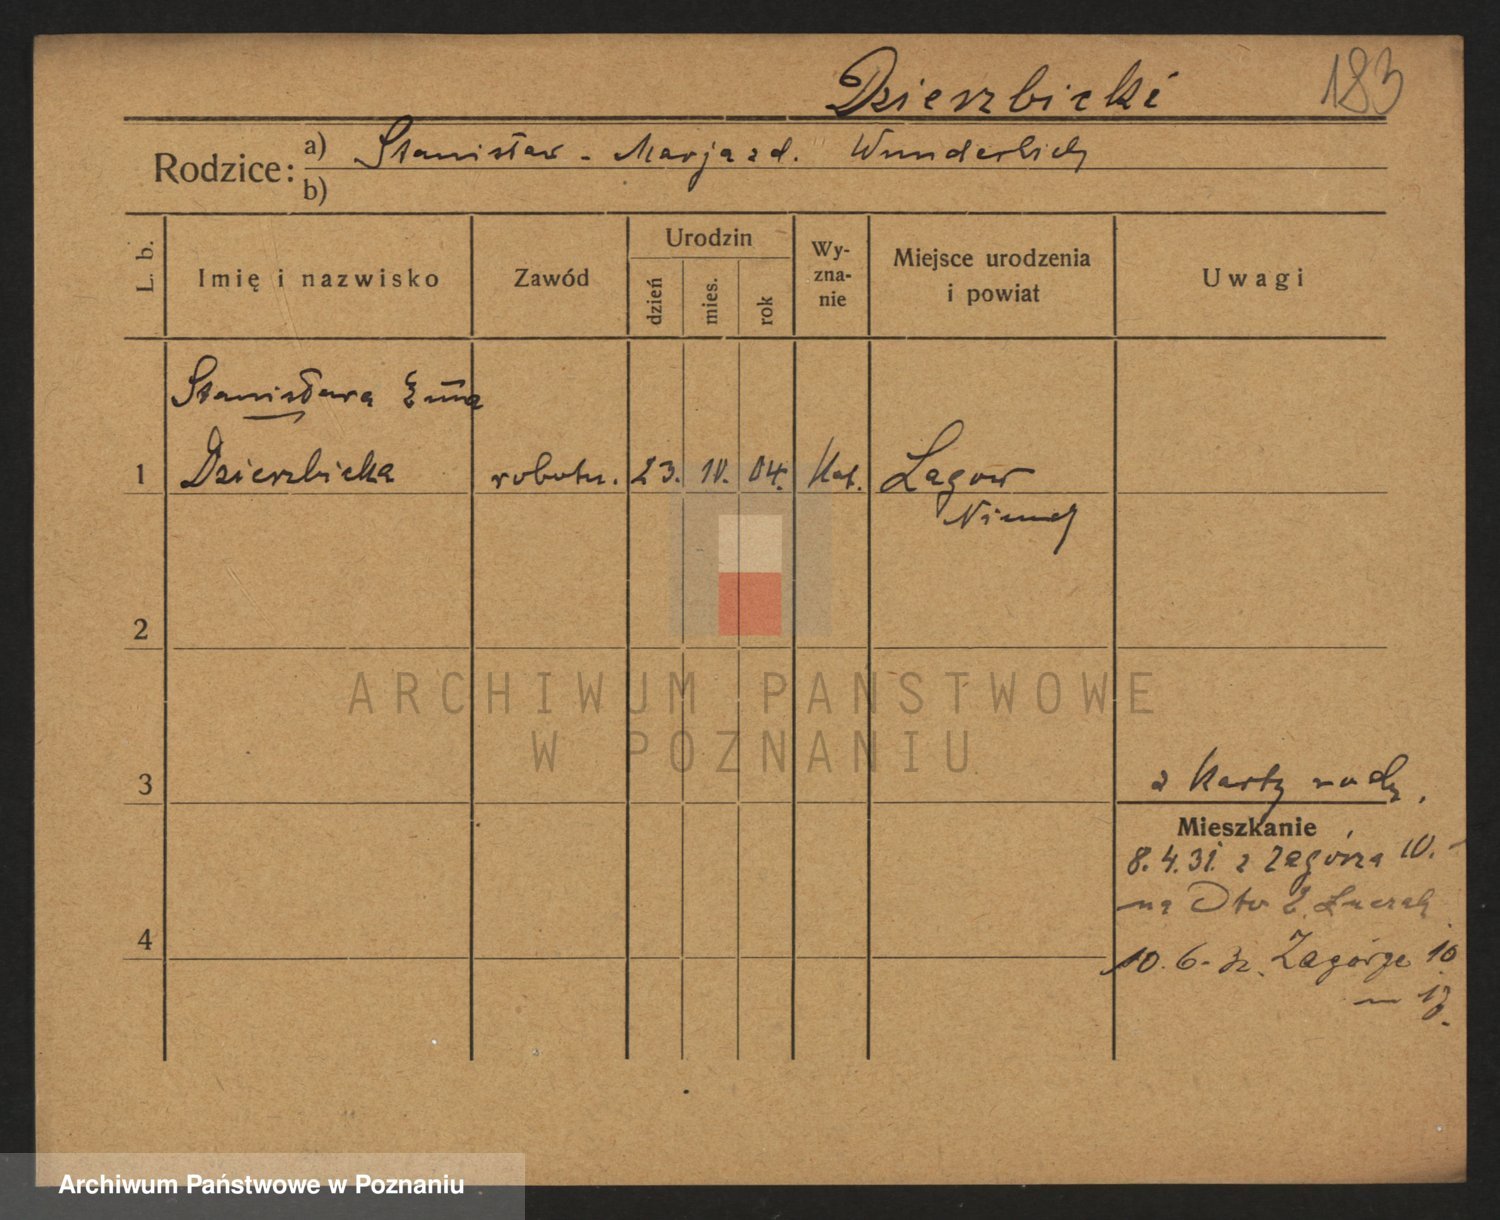 Dzierzbicki 183
Rodzice: a) Stanisław - Marja z d. Wunderlich
b)
L. b. Imię i nazwisko Zawód Urodzin dzień mies. rok Wy-zna-nie Miejsce urodzenia i powiat Uwagi
Stanisława Ema
1 Dzierzbicka robotn. 23. IV. 04. Kat. Lagow
Niemcy
2
ARCHIWUM PAŃSTWOWE
W POZNANIU
z karty rodz.
3
Mieszkanie
8. 4. 31. z Zagórza 10.
na
4
10. 6. 32. Zagórze 10
m 13.
Archiwum Państwowe w Poznaniu